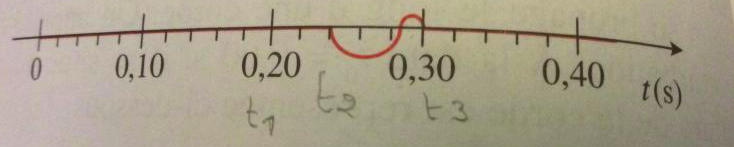 0 0,10 0,20 0,30 0,40 t(s)
t1 t2 t3